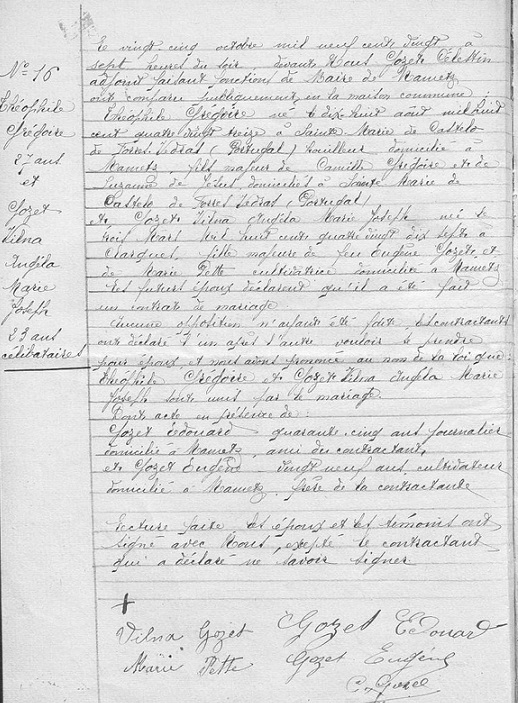 N° 16
Théophile
Grégoire
27 ans
et
Gozet
Vilna
Angéla
Marie
Joseph
23 ans
célibataires
Le vingt-cinq octobre mil neuf cent vingt, à
sept heures du soir, devant Nous Gozet Célestin
adjoint faisant fonctions de Maire de Mametz
ont comparu publiquement en la maison commune :
Théophile Grégoire né le dix-huit août mil huit
cent quatre vingt treize à Sainte Marie de Castelo
de Torres Vedras (Portugal) houilleur domicilié à
Mametz fils majeur de Camille Grégoire et de
Suzanna de Jésus domiciliés à Sainte Marie de
Castelo de Torres Vedras (Portugal)
et Gozet Vilna Angéla Marie Joseph née le
trois Mars mil huit cent quatre vingt dix sept à
Clarques, fille majeure de feu Eugène Gozet, et
de Marie Pette cultivatrice domiciliée à Mametz
Les futurs époux déclarent qu'il a été fait
un contrat de mariage.
Aucune opposition n'ayant été faite, les contractants
ont déclaré l'un après l'autre vouloir se prendre
pour époux et nous avons prononcé au nom de la loi que
Théophile Grégoire et Gozet Vilna Angéla Marie
Joseph sont unis par le mariage
Dont acte en présence de :
Gozet Edouard quarante cinq ans journalier
domicilié à Mametz, ami du contractant,
et Gozet Eugène vingt neuf ans cultivateur
domicilié à Mametz, frère de la contractante
Lecture faite, les époux et les témoins ont
signé avec Nous, excepté le contractant
qui a déclaré ne savoir signer.
+
Vilna Gozet Gozet Edouard
Marie Pette Gozet Eugène
C. Gozet